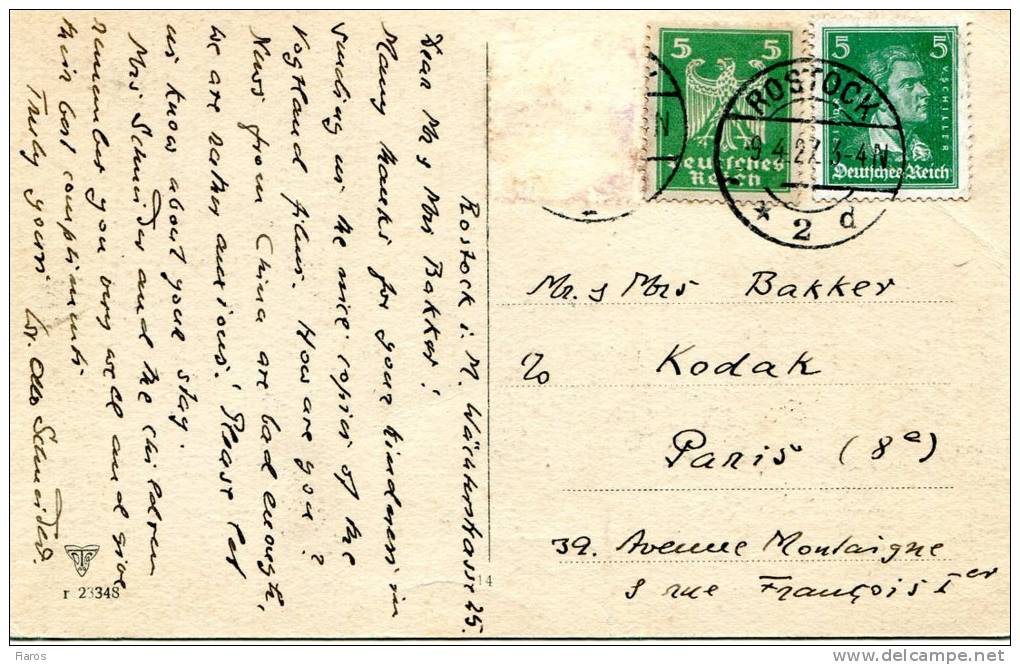 Rostock i. M. Wächterstrasse 25.
Dear Mr & Mrs Bakker!
Many thanks for your kindness in
sending us the nice copies of the
Vogtland films. How are you?
News from China are bad enough,
we are rather anxious! Please let
us know about your stay.
Mrs Schneider and the children
remember you very well and give
their best compliments
Truly yours Dr. Otto Schneider.
r 23348
14
5 5
Deutsches
Reich
5 5
v SCHILLER
Deutsches Reich
ROSTOCK
9.4.27. 3-4N
* 2 d
Mr. & Mrs Bakker
Kodak
Paris (8e)
39. Avenue Montaigne
& rue François Ier
Raros
delcampe.net